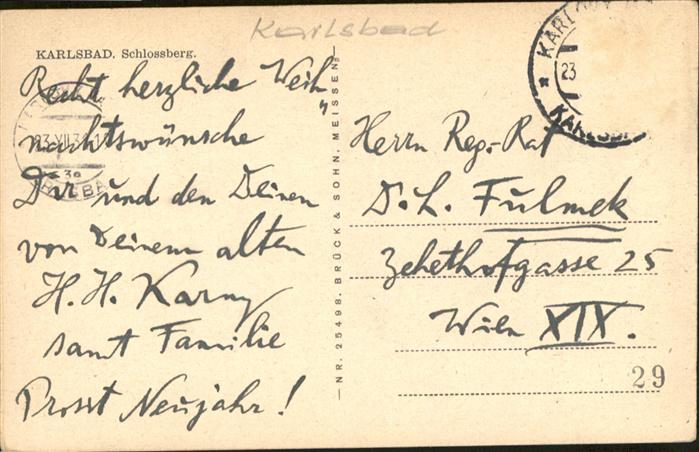 Karlsbad
KARLSBAD. Schlossberg.
Recht herzliche Weih
nachtswünsche
Dir und den Deinen
von Deinem alten
H. H. Karny
samt Familie
Prosst Neujahr!
NR. 25498. BRÜCK & SOHN, MEISSEN
23
KARLSBAD
23.VII.3
3a
Herrn Reg.-Rat
D. L. Fulmek
Zehethofgasse 25
Wien XIX.
29